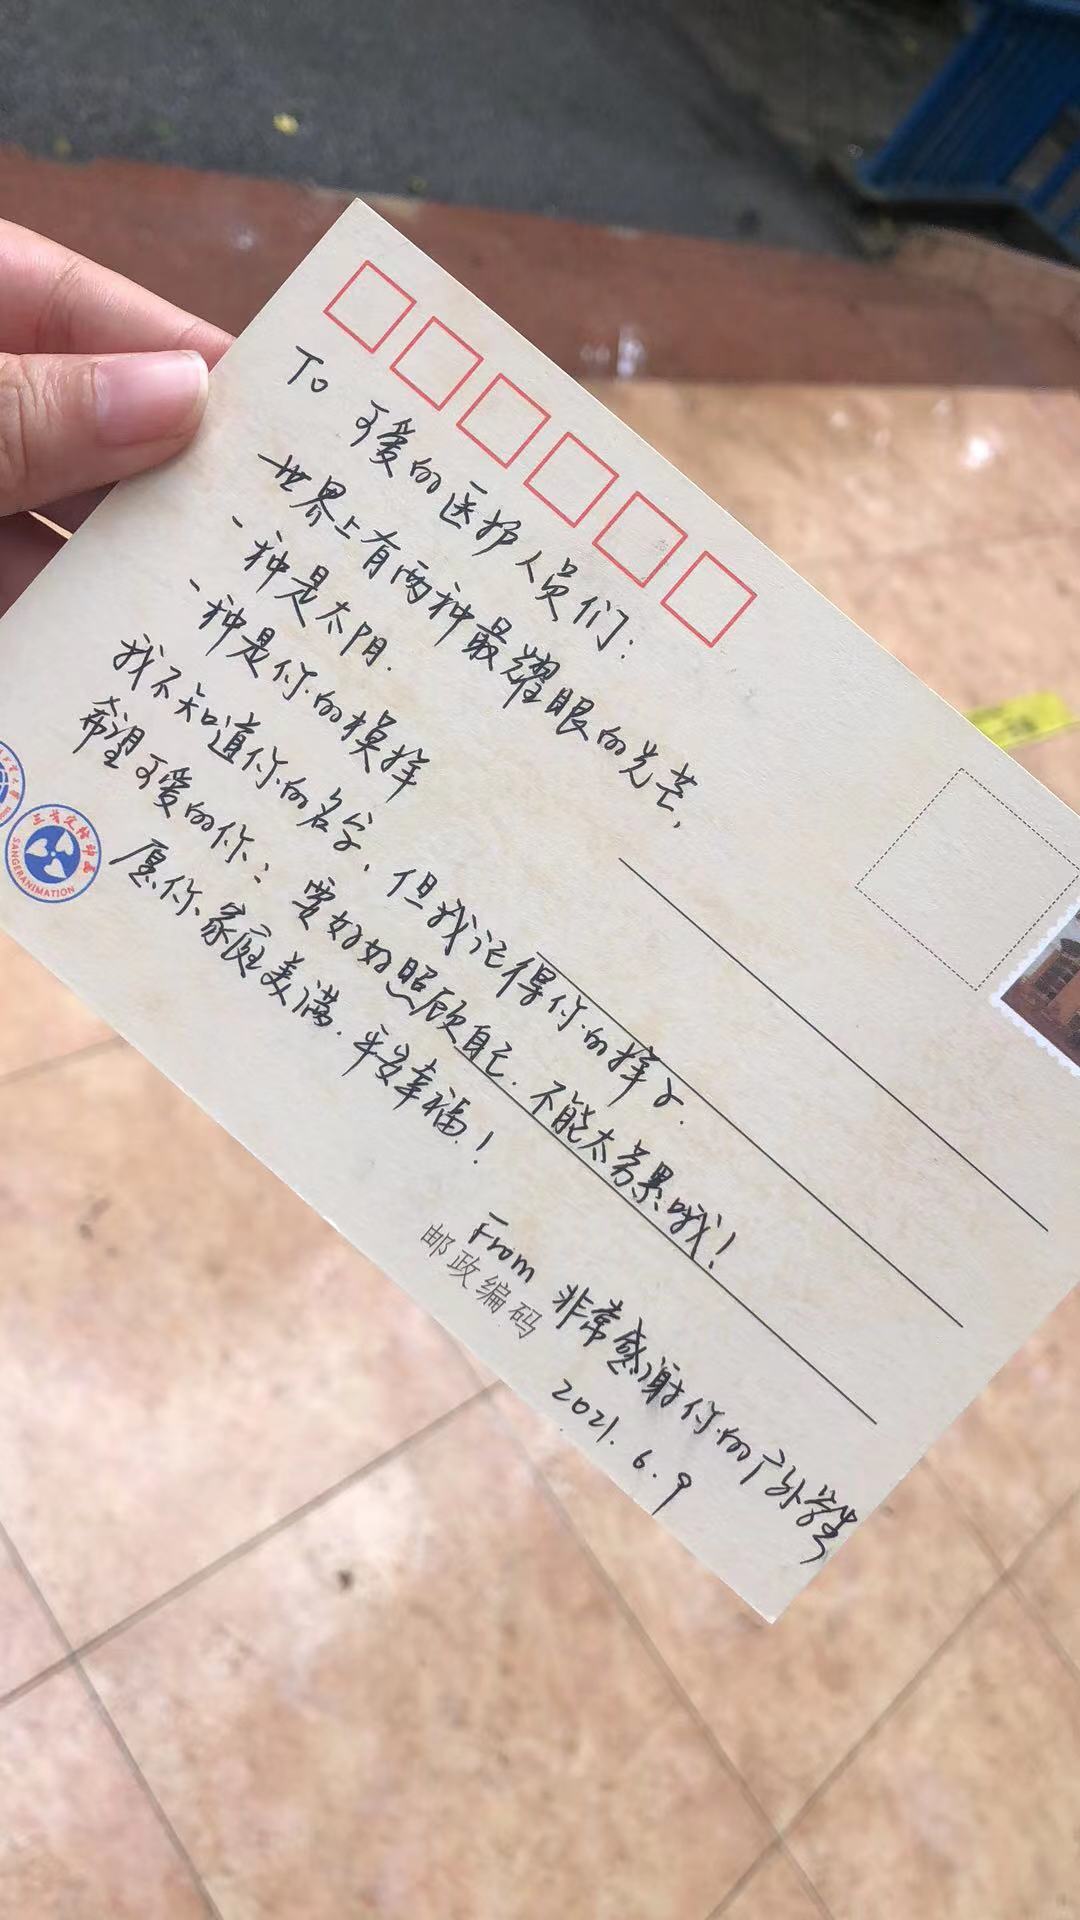 To 可爱的医护人员们:
世界上有两种最耀眼的光芒,
一种是太阳.
一种是你的模样
我不知道你的名字,但我记得你的样子.
希望可爱的你:要好好照顾自己.不能太劳累哦!
愿你家庭美满.平安幸福!
From 非常感谢你的广外学生
2021.6.9
邮政编码
SANGERANIMATION